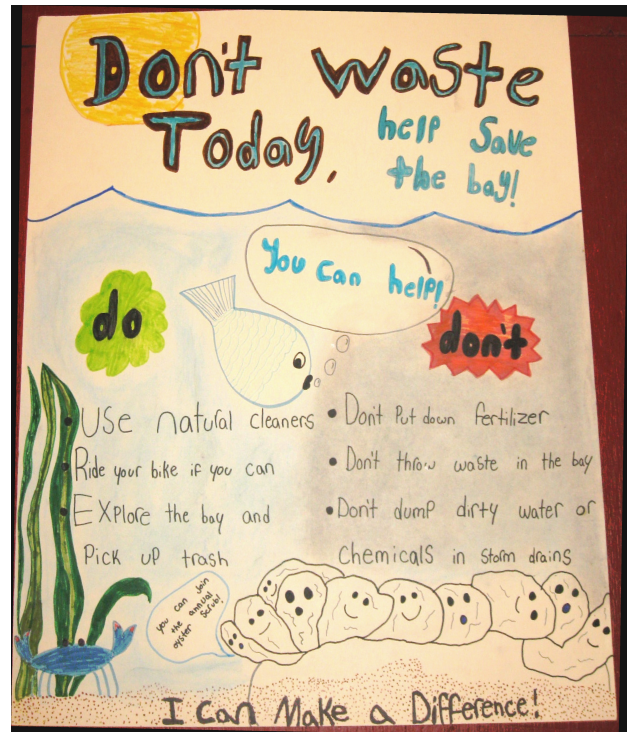 Don't Waste
Today,
help Save
the bay!
You Can help!
do
• Use natural cleaners
• Ride your bike if you can
• Explore the bay and
Pick up trash
don't
• Don't Put down fertilizer
• Don't throw waste in the bay
• Don't dump dirty water or
Chemicals in storm drains
you can join
the annual
oyster scrub!
I Can Make a Difference!